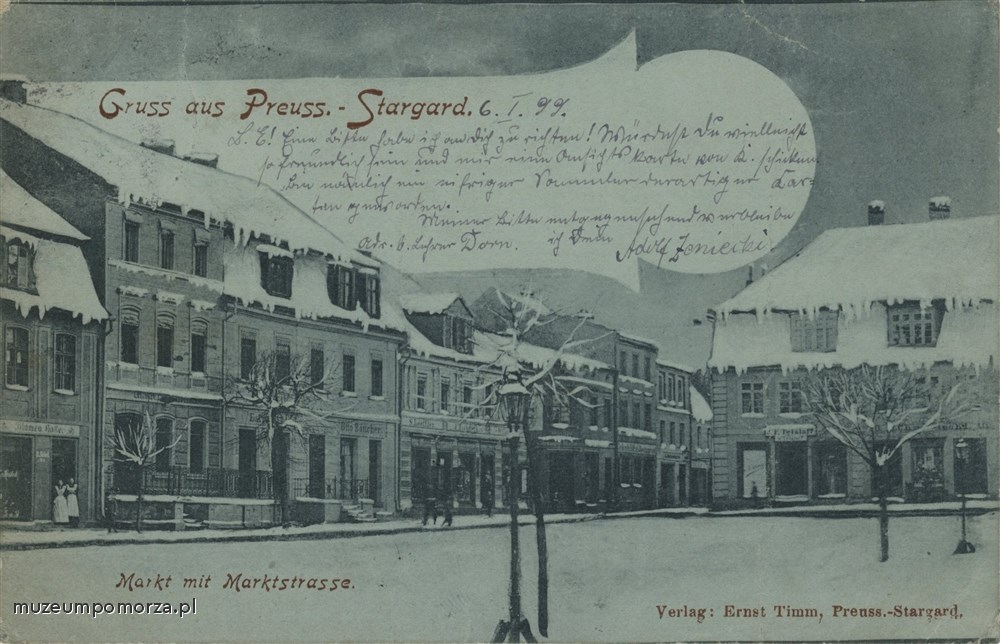 Gruss aus Preuss.-Stargard. 6. I. 99.
L. E! Eine Bitte habe ich an dich zu richten! Würdest Du vielleicht
so freundlich sein und mir eine Ansichtskarte von K. schicken
bin nämlich ein eifriger Sammler derartiger Kar-
ten geworden.
Meiner Bitte entgegensehend verbleibe
Adr. b. Lehrer Dorn. ich Dein Adolf
Otto Böttcher
Markt mit Marktstrasse.
muzeumpomorza.pl
Verlag: Ernst Timm, Preuss.-Stargard.